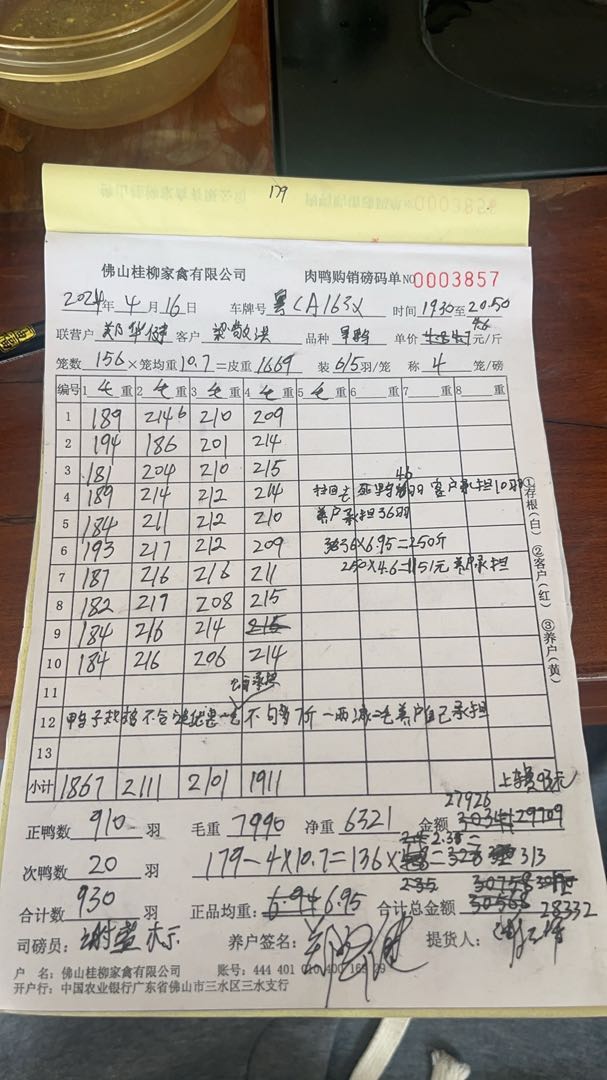 179
佛山桂柳家禽有限公司 肉鸭购销磅码单 NO 0003857
2024年 4月 16日 车牌号 粤CA163X 时间 1930至20:50
联营户 郑华健 客户 梁敬洪 品种 单价 4.6 元/斤
笼数 156 × 笼均重 10.7 = 皮重 1669 装 6/5 羽/笼 称 4 笼/磅
编号 1 毛 重 2 毛 重 3 毛 重 4 毛 重 5 毛 重 6 重 7 重 8 重
1 189 2146 210 209
2 194 186 201 214
3 181 204 210 215
46
4 189 214 212 214 拉回去死鸭 羽 客户承担10羽
5 184 211 212 210 养户承担36羽
6 193 217 212 209 36×6.95=250斤
7 187 216 216 211 250×4.6=1151元 养户承担
8 182 219 208 215
9 184 216 214 215
10 184 216 206 214
11
12 鸭子 不合 不 7斤 一两减二毛养户自己承担
13
小计 1867 2111 2101 1911 上车费93元
27926
正鸭数 910 羽 毛重 7990 净重 6321 金额 29709
2.35
次鸭数 20 羽 179-4×10.7=136× = 313
合计数 930 羽 正品均重: 6.95 合计总金额 28332
司磅员: 养户签名: 提货人:
户 名: 佛山桂柳家禽有限公司 账号: 444 401 010 400 165 29
开户行: 中国农业银行广东省佛山市三水区三水支行
①存根(白) ②客户(红) ③养户(黄)